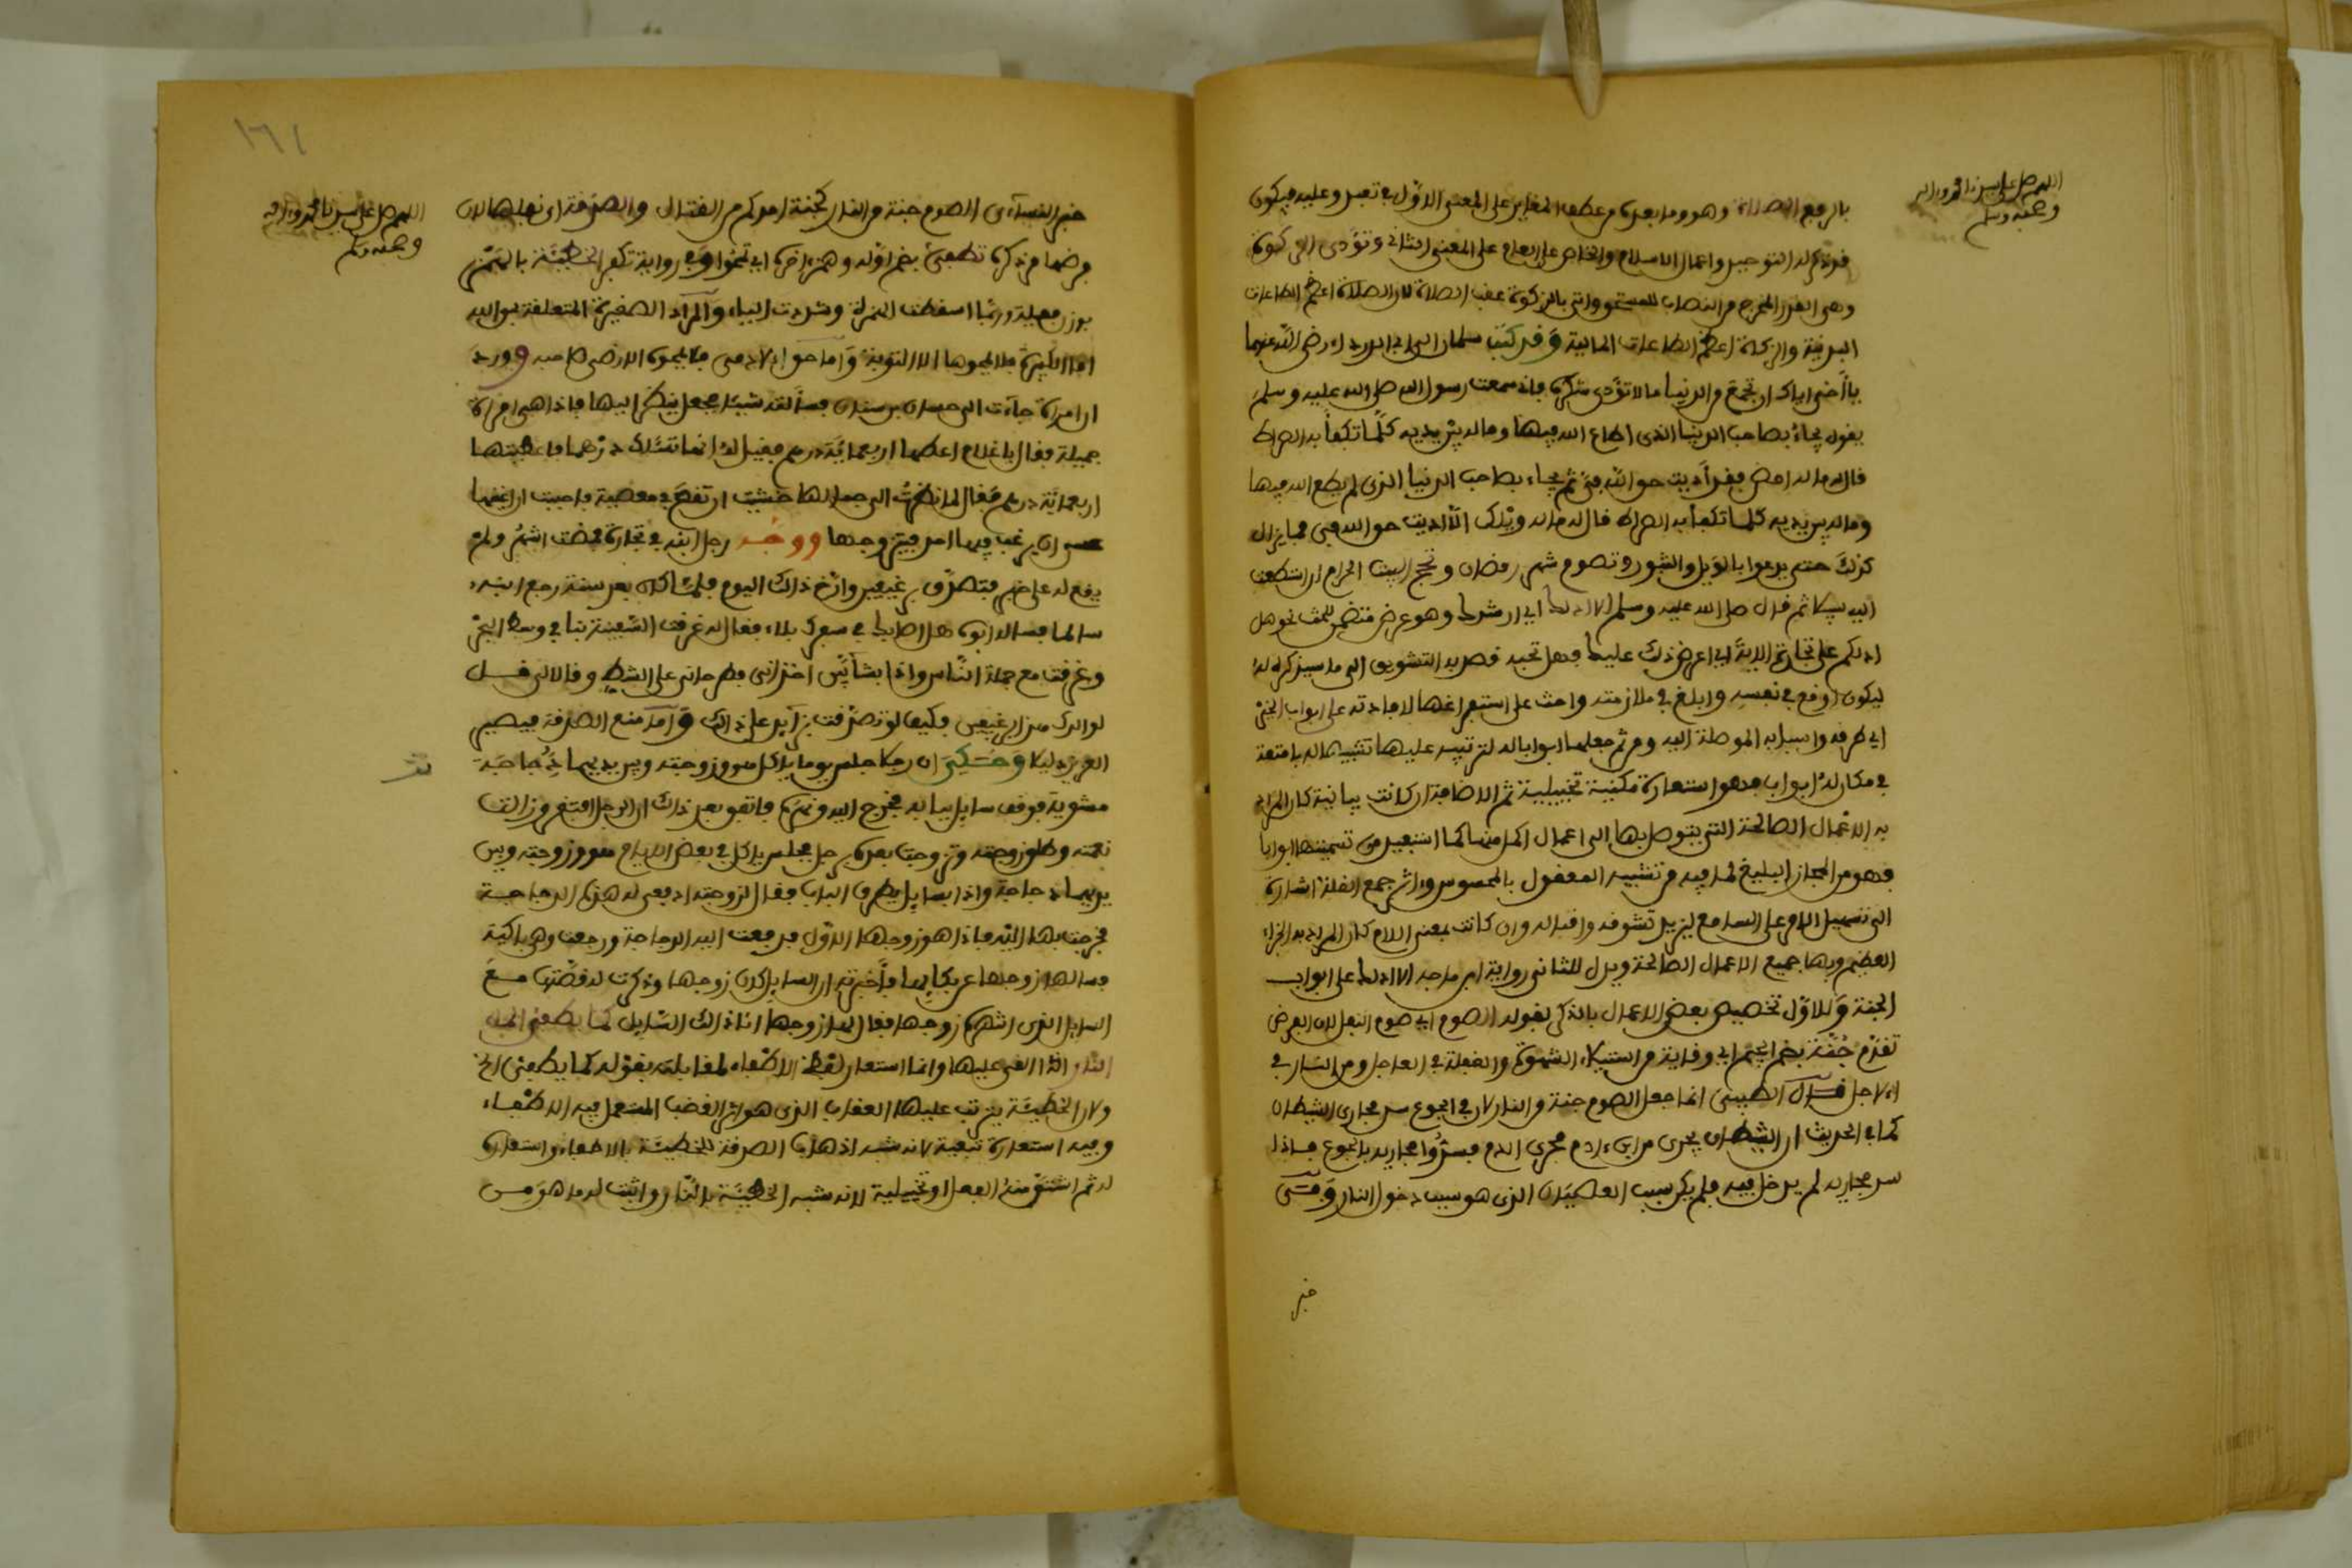 اللهم صل على سيدنا محمد وءاله
وصحبه وسلم
بالرفع الصلاة وهو وما بعده من عطف المغاير على المعنى الاول في تعبد وعليه فيكون
قد ذكر له التوحيد واعمال الاسلام والخاص على العام على المعنى الثاني وتؤدى الزكوة
وهى القدر المخرج من النصاب للمستحق واتى بالزكوة عقب الصلاة لان الصلاة اعظم الطاعات
البدنية والزكاة اعظم الطاعات المالية وقد كتب سلمان الى ابي الدرداء رضى الله عنهما
يا أخى اياك ان تجمع من الدنيا ما لا تؤدى شكره فانى سمعت رسول الله صلى الله عليه وسلم
يقول يجاء بصاحب الدنيا الذى اطاع الله فيها وماله بين يديه كلما تكفأ به الصراط
قال له ماله امض فقد أديت حق الله فىّ ثم يجاء بصاحب الدنيا الذى لم يطع الله فيها
وماله بين يديه كلما تكفأ به الصراط قال له ماله ويلك ألا أديت حق الله فى فما يزال
كذلك حتى يدعوا بالويل والثبور وتصوم شهر رمضان وتحج البيت الحرام ان استطعت
اليه سبيلا ثم قال صلى الله عليه وسلم الا ادلك اي ارشدك وهو عرض متضمن للحث نحو هل
ادلكم على تجارة الاية اي اعرض ذلك عليك فهل تحبه قصد به التشويق الى ما سيذكر له
ليكون اوقع في نفسه وابلغ في ملازمته واحث على استفراغها لافادته على ابواب الخير
اي طرقه واسبابه الموصلة اليه ومن ثم جعلها ابوابا له لترتبه عليها تشبيها له بامتعة
في مكان له ابواب فهو استعارة مكنية تخييلية ثم الاضافة ان كانت بيانية كان المراد
به الاعمال الصالحة التى يتوصل بها الى اعمال اكمل منها كما استفيد من تسميتها ابوابا
فهو من المجاز البليغ لما فيه من تشبيه المعقول بالمحسوس واثر جمع القلة اشارة
الى تسهيل الامر على السامع ليزيد تشوفه واقباله وان كانت بمعنى اللام كان المراد به الجزاء
العظيم وبها جميع الاعمال الصالحة ويدل للثانى رواية ابن ماجه الا ادلك على ابواب
الجنة وللاول تخصيص بعض الاعمال بالذكر بقوله الصوم اي صوم النفل لان الفرض
تقدم جُنّة بضم الجيم اي وقاية من استيلاء الشهوة والغفلة في العاجل ومن النار في
الاجل قال الطيبى انما جعل الصوم جنة من النار لان في الجوع سد مجارى الشيطان
كما في الحديث ان الشيطان يجرى من ابن ءادم مجرى الدم فسدوا مجاريه بالجوع فاذا
سد مجاريه لم يدخل فيه فلم يكن سبب العصيان الذى هو سبب دخول النار وفى
خبر
١٦١
اللهم صل على سيدنا محمد وءاله
وصحبه وسلم
خبر النسآءى الصوم جنة من النار كجنة احدكم من القتال والصدقة اى نفلها لان
فرضها مر ذكره تطفئ بضم اوله وهمز اخره اي تمحو وفى رواية تكفر الخطيئة بالهمز
بوزن فعيلة وربما اسقطت الهمزة وشددت الياء والمراد الصغيرة المتعلقة بحق الله
اما الكبيرة فلا يمحوها الا التوبة واما حق الادمى فلا يمحوه الا رضى صاحبه وورد
ان امراة جآءت الى حسان بن سنان فسألته شيئا فجعل ينظر اليها فاذا هى امراة
جميلة فقال يا غلام اعطها اربعمائة درهم فقيل له انما تسئلك درهما فاعطيتها
اربعمائة درهم فقال لما نظرت الى جمالها خشيت ان تقع في معصية فاحببت ان اغنيها
عسى ان يرغب فيها احد فيتزوجها ووجه رجل ابنه في تجارة فمضت اشهر ولم
يقع له على خبر فتصدق برغيفين وارخ ذلك اليوم فلما كان بعد سنة رجع ابنه
سالما فساله ابوه هل اصابك في سفرك بلاء فقال له غرقت السفينة بنا في وسط البحر
وغرقت مع جملة الناس واذا بشابين اخذانى فطرحانى على الشط وقالا لى قل
لوالدك هذا برغيفين فكيف لو تصدقت بزآئد على ذلك واما منع الصدقة فيصير
العزيز ذليلا وحكى ان رجلا جلس يوما ياكل هو وزوجته وبين يديهما دجاجة
مشوية فوقف سائل ببابه فخرج اليه ونهره فاتفق بعد ذلك ان الرجل افتقر وزالت
نعمته وطلق زوجته وتزوجت بعده برجل فجلس ياكل في بعض الايام هو وزوجته وبين
يديهما دجاجة واذا بسائل يطرق الباب فقال لزوجته ادفعى له هذه الدجاجة
فخرجت بها اليه فاذا هو زوجها الاول فدفعت اليه الدجاجة ورجعت وهى باكية
فسالها زوجها عن بكائها فأخبرته ان السائل كان زوجها وذكرت له قصتها مع
السائل الذى انتهره زوجها فقال لها زوجها انا ذلك السائل كما يطفئ الماء
النار اذا القى عليها وانما استعار لفظ الاطفاء لمقابلته بقوله كما يطفئ الخ
ولان الخطيئة يترتب عليها العقاب الذى هو اثر الغضب المستعمل فيه الاطفاء
وفيه استعارة تبعية لانه شبه اذهاب الصدقة للخطيئة بالاطفاء واستعاره
له ثم اشتق منه الفعل او تخييلية لانه شبه الخطيئة بالنار واثبت له ما هو من